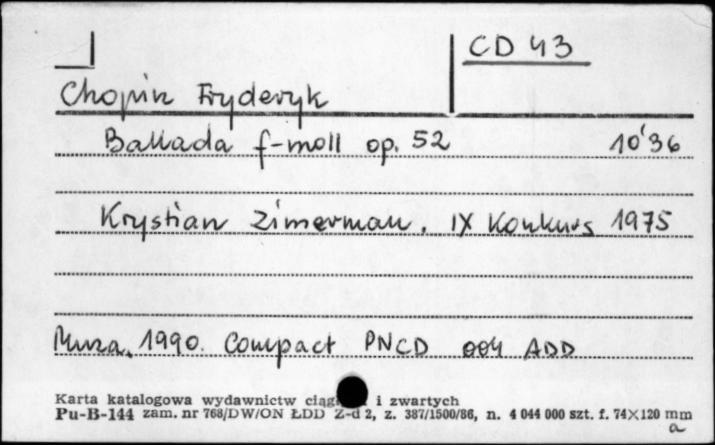 CD 43
Chopin Fryderyk
Ballada f-moll op. 52 10'36
Krystian Zimerman. IX Konkurs 1975
Muza, 1990. Compact PNCD 004 ADD
Karta katalogowa wydawnictw i zwartych
Pu-B-144 zam. nr 768/DW/ON ŁDD Z-d 2, z. 387/1500/86, n. 4 044 000 szt. f. 74×120 mm
a